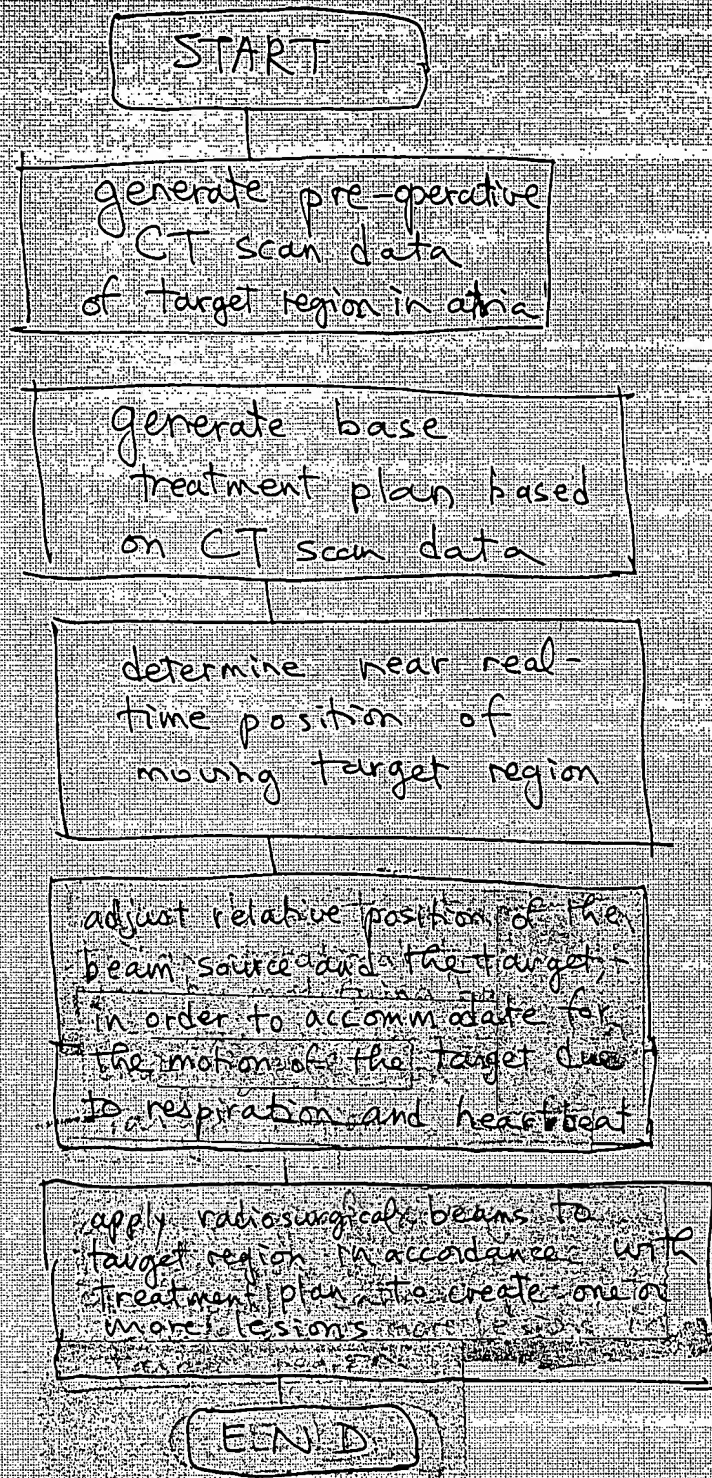 START
generate pre-operative
CT scan data
of target region in atria
generate base
treatment plan based
on CT scan data
determine near real-
time position of
moving target region
adjust relative position of the
beam source and the target,
in order to accommodate for
the motion of the target due
to respiration and heartbeat
apply radiosurgical beams to
target region in accordance with
treatment plan to create one or
more lesions
END